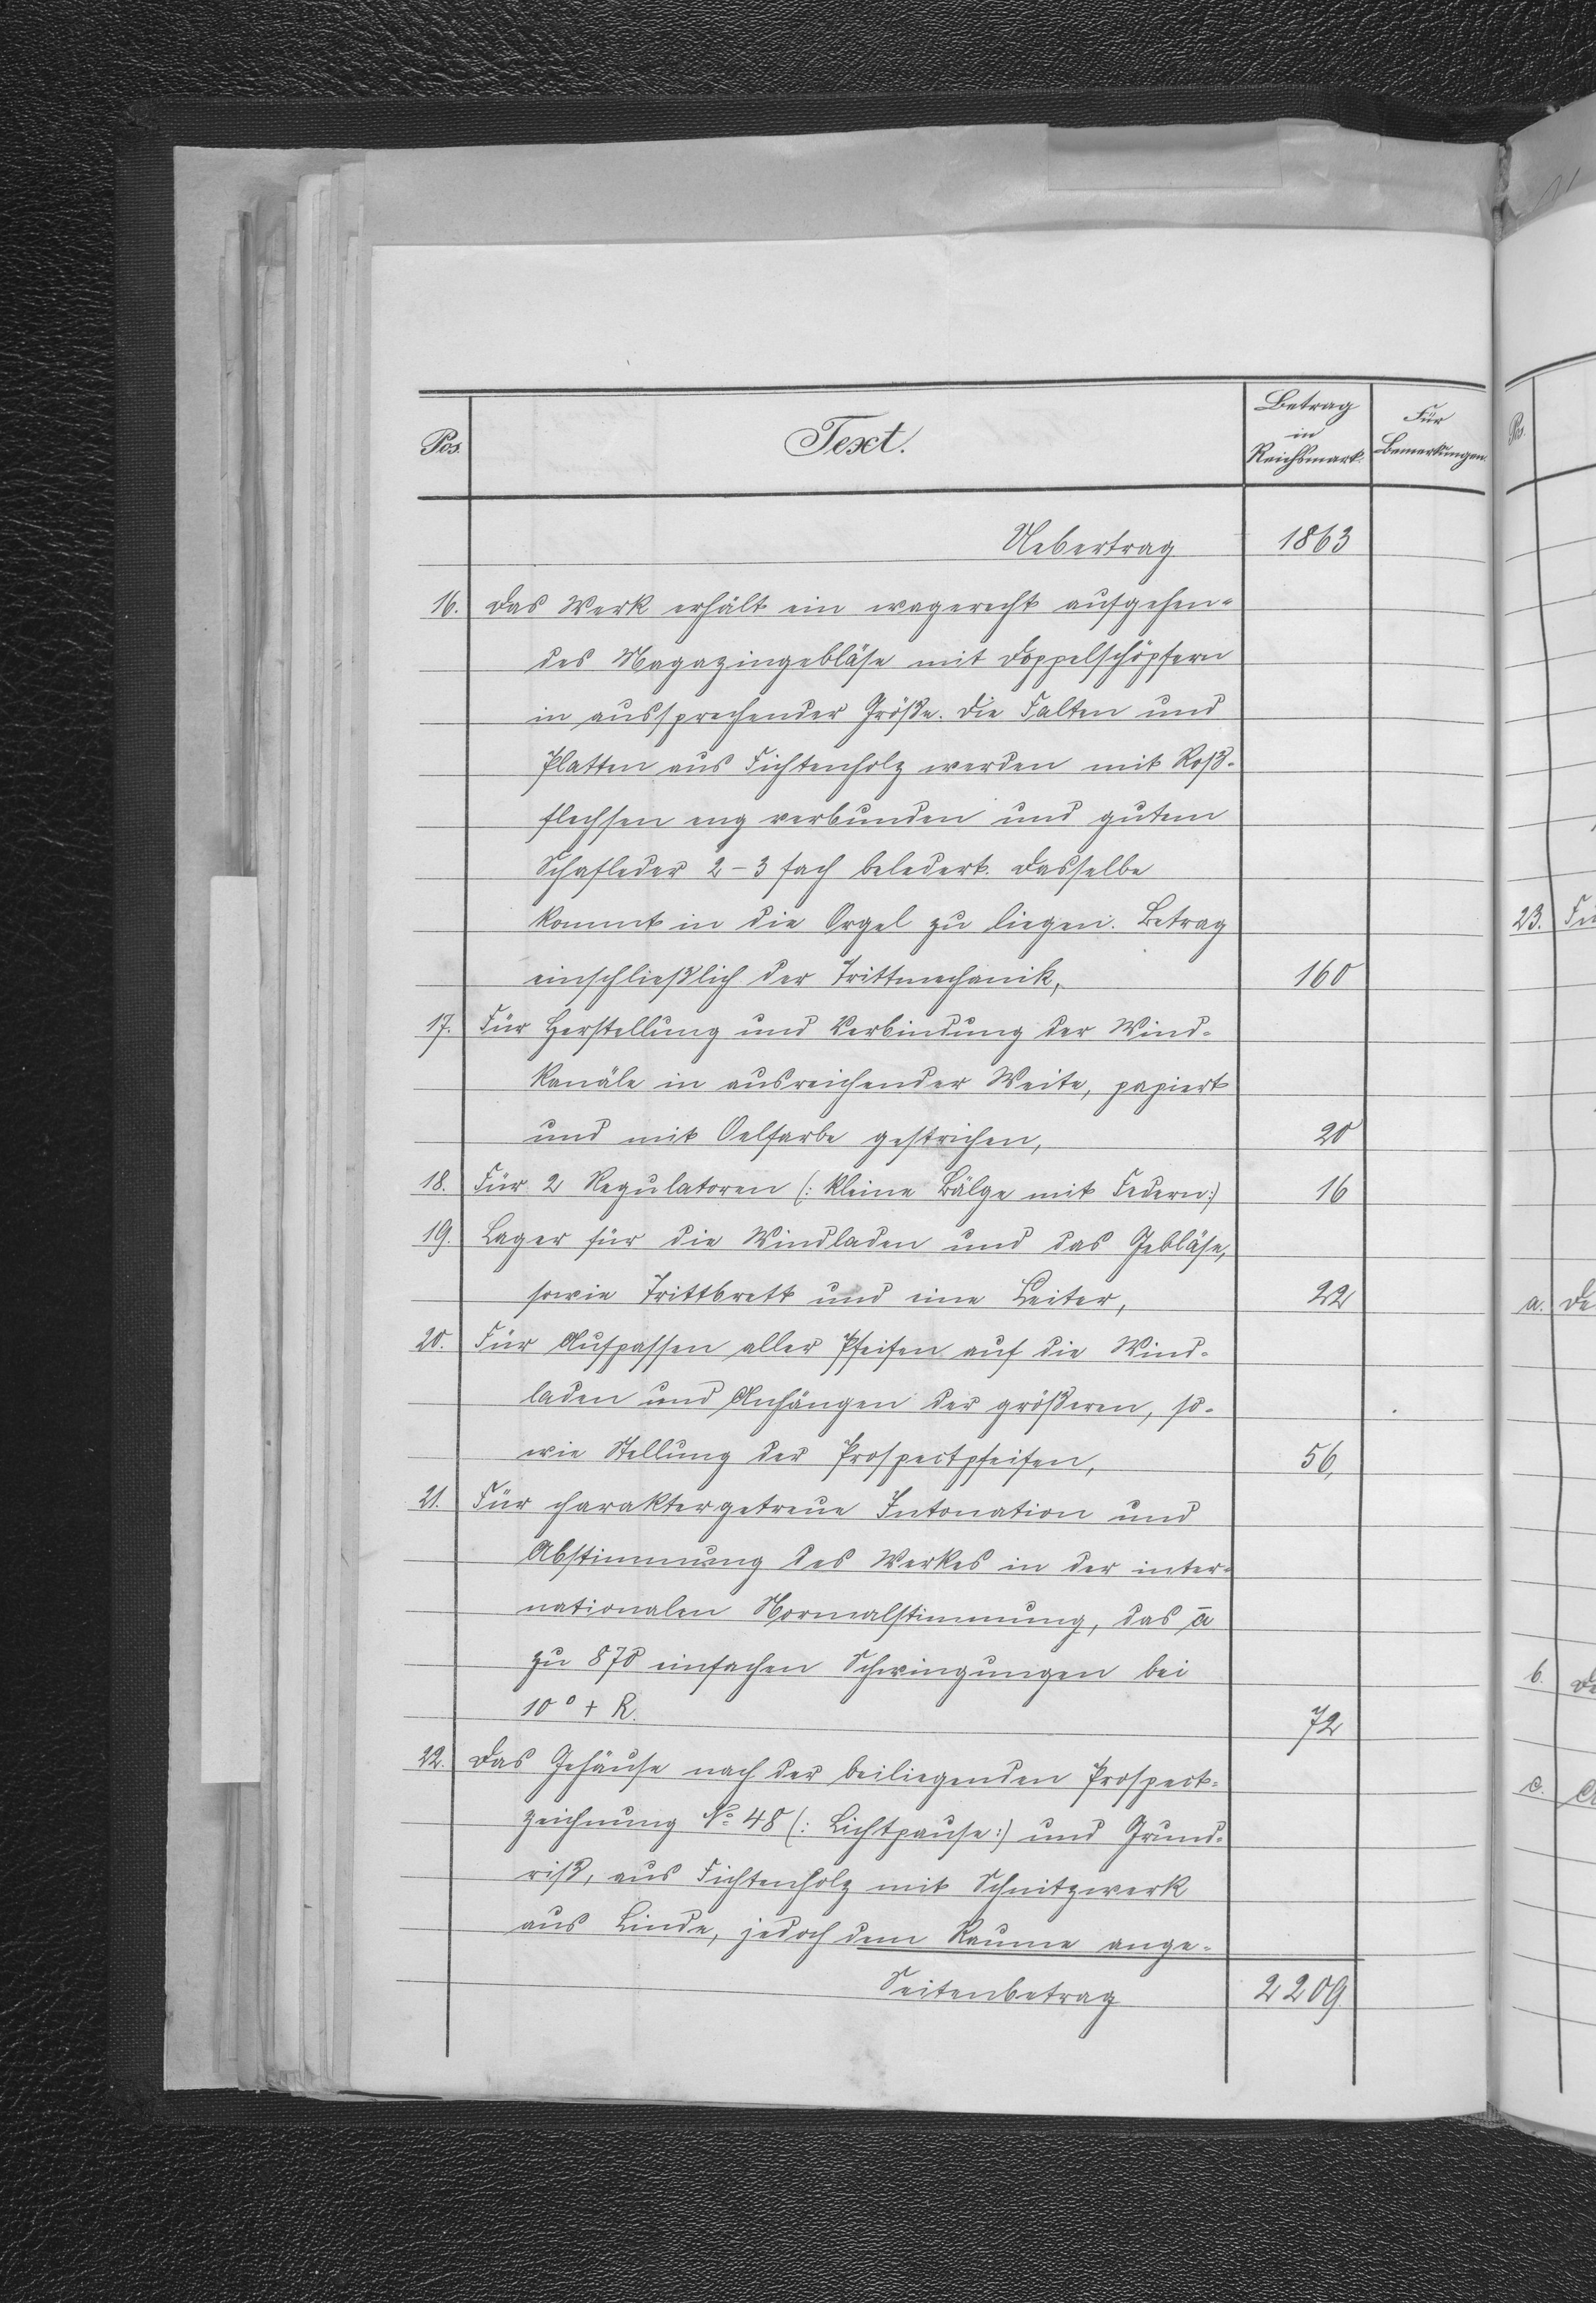 Pos. Text. Betrag in Reichsmark. Für Bemerkungen.
Uebertrag 1863
16. Das Werk erhält ein wagerecht aufgehen-
des Magazingebläse mit Doppelschöpfern
in aussprechender Größe. Die Falten und
Platten aus Fichtenholz werden mit Roß-
flechsen eng verbunden und gutem
Schafleder 2-3 fach beledert. Dasselbe
kommt in die Orgel zu liegen. Betrag
einschließlich der Trittmechanik, 160
17. Für Herstellung und Verbindung der Wind-
kanäle in ausreichender Weite, papiert
und mit Oelfarbe gestrichen, 20
18. Für 2 Regulatoren (: kleine Bälge mit Federn:) 16
19. Lager für die Windladen und das Gebläse,
sowie Trittbrett und eine Leiter, 22
20. Für Aufpassen aller Pfeifen auf die Wind-
laden und Anhängen der größeren, so-
wie Stellung der Prospectpfeifen, 56,
21. Für charaktergetreue Intonation und
Abstimmung des Werkes in der inter-
nationalen Normalstimmung, das ā
zu 870 einfachen Schwingungen bei
10° + R. 72
22. Das Gehäuse nach der beiliegenden Prospect-
zeichnung No 48 (: Lichtpause:) und Grund-
riß, aus Fichtenholz mit Schnitzwerk
aus Linde, jedoch dem Raume ange-
Seitenbetrag 2209
Pos.
23.
a.
b.
c.